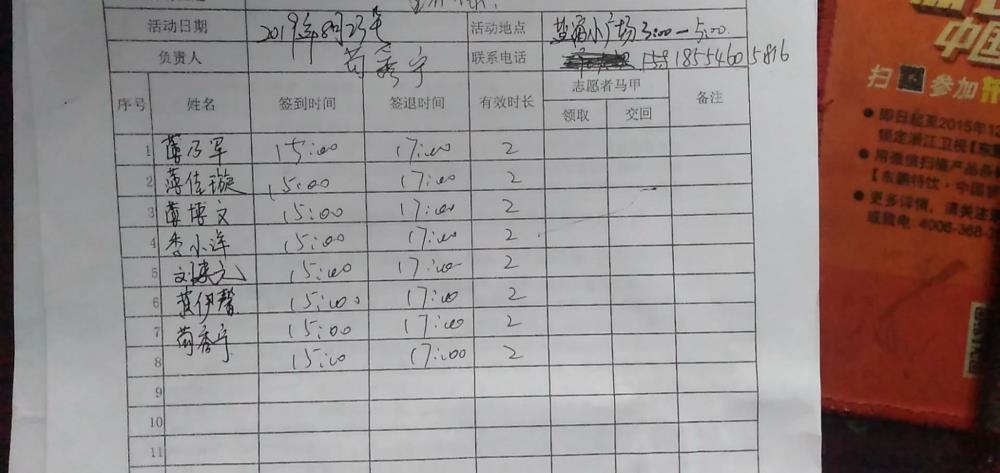 活动日期 2019年8月23号 活动地点 盐窝小广场3:00-5:00
负责人 苟秀宁 联系电话 18554605816
序号 姓名 签到时间 签退时间 有效时长 志愿者马甲 备注
领取 交回
1 薄乃军 15:00 17:00 2
2 薄佳璇 15:00 17:00 2
3 薄博文 15:00 17:00 2
4 李小洋 15:00 17:00 2
5 15:00 17:00 2
6 伊馨 15:00 17:00 2
7 苟秀宁 15:00 17:00 2
8 15:00 17:00 2
9
10
11
中国
扫 参加
即日起至2015年
锁定浙江卫视【东
用微信扫描产品条
【东鹏特饮·中国
更多详情，请关注
或致电 4006-368-3